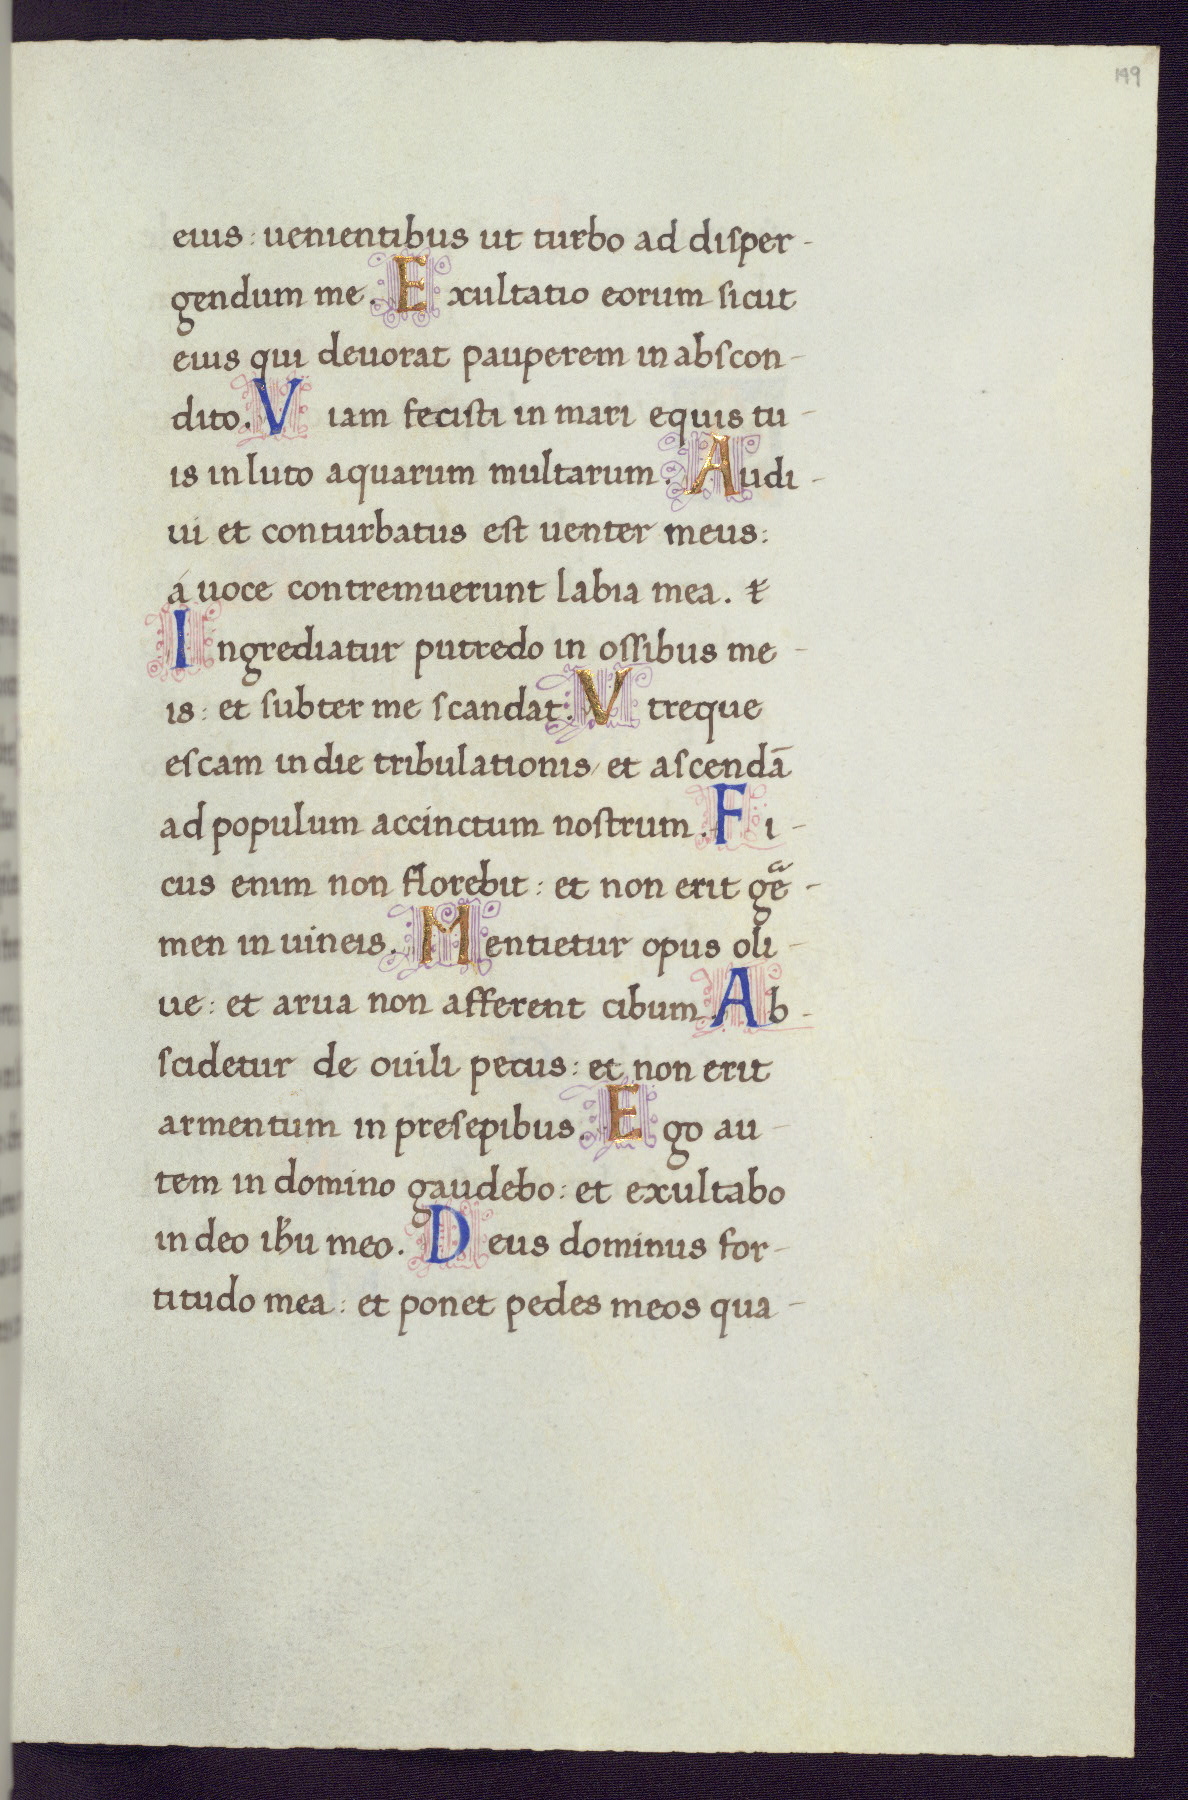 149
eius: uenientibus ut turbo ad disper-
gendum me. Exultatio eorum sicut
eius qui deuorat pauperem in abscon-
dito. Viam fecisti in mari equis tu-
is in luto aquarum multarum. Audi-
ui et conturbatus est uenter meus:
á uoce contremuerunt labia mea. &
Ingrediatur putredo in ossibus me-
is: et subter me scandat. Vtreque
escam in die tribulationis/ et ascendā
ad populum accinctum nostrum. Fi-
cus enim non florebit: et non erit gẽ-
men in uineis. Mentietur opus oli-
ue: et arua non afferent cibum. Ab-
scidetur de ouili pecus: et non erit
armentum in presepibus. Ego au-
tem in domino gaudebo: et exultabo
in deo ihu meo. Deus dominus for-
titudo mea: et ponet pedes meos qua-